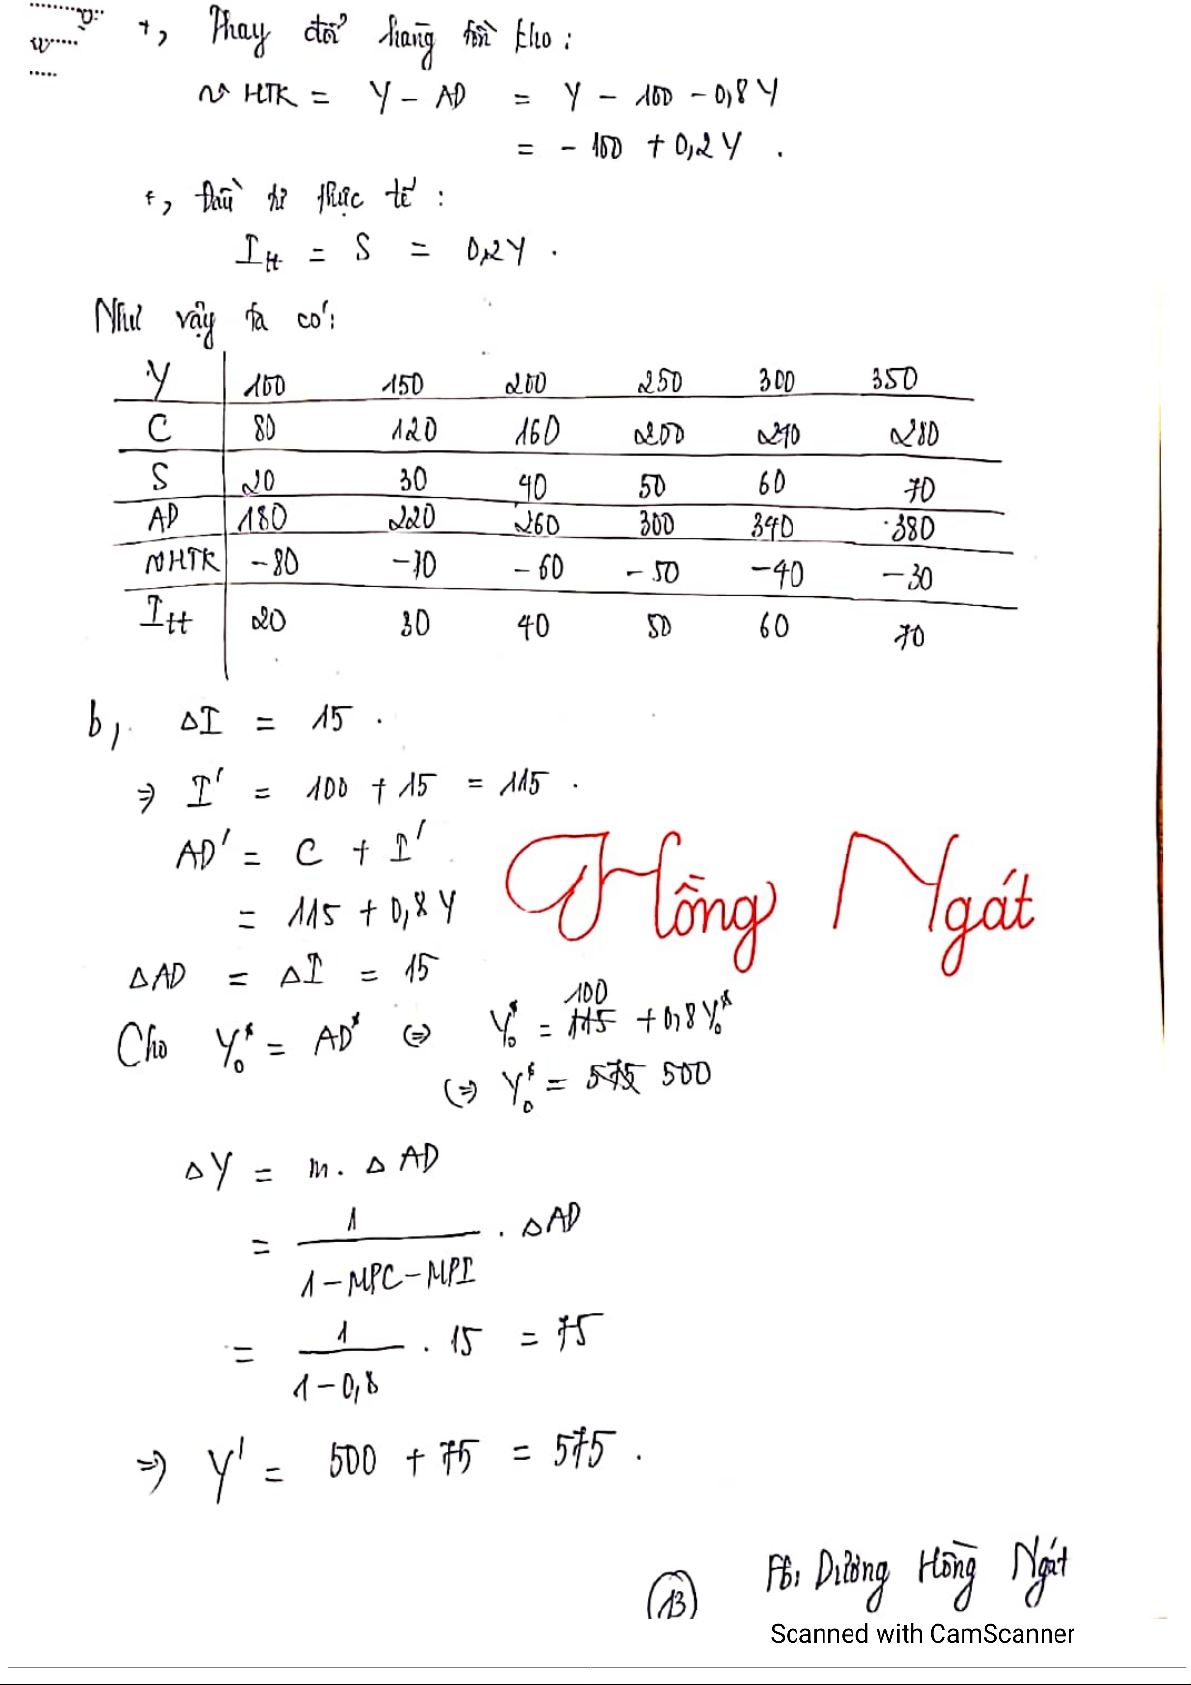 +, Thay đổi hàng tồn kho :
~ HTK = Y - AD = Y - 100 - 0,8Y
= - 100 + 0,2Y .
+, Đầu tư thực tế :
Itt = S = 0,2Y .
Như vậy ta có:
Y 100 150 200 250 300 350
C 80 120 160 200 240 280
S 20 30 40 50 60 70
AD 180 220 260 300 340 380
~HTK -80 -70 -60 -50 -40 -30
Itt 20 30 40 50 60 70
b, ΔI = 15 .
⇒ I' = 100 + 15 = 115 .
AD' = C + I'
= 115 + 0,8Y
Hồng Ngát
ΔAD = ΔI = 15
100
Cho Y₀* = AD* ⇔ Y₀* = 115 + 0,8Y₀*
⇔ Y₀* = 575 500
ΔY = m. ΔAD
= 1 / (1 - MPC - MPI) . ΔAD
= 1 / (1 - 0,8) . 15 = 75
⇒ Y' = 500 + 75 = 575 .
Fb: Dương Hồng Ngát
13
Scanned with CamScanner